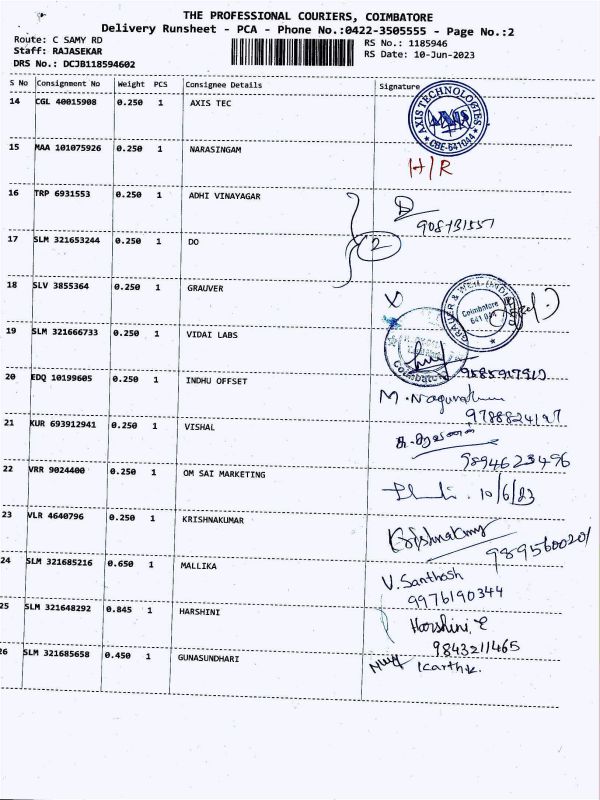 THE PROFESSIONAL COURIERS, COIMBATORE
Delivery Runsheet - PCA - Phone No.:0422-3505555 - Page No.:2
Route: C SAMY RD
Staff: RAJASEKAR
DRS No.: DCJB118594602
RS No.: 1185946
RS Date: 10-Jun-2023
S No Consignment No Weight PCS Consignee Details Signature
14 CGL 40015908 0.250 1 AXIS TEC
AXIS TECHNOLOGIES
CBE-641044
15 MAA 101075926 0.250 1 NARASINGAM
H/R
16 TRP 6931553 0.250 1 ADHI VINAYAGAR
17 SLM 321653244 0.250 1 DO
2
18 SLV 3855364 0.250 1 GRAUVER
Coimbatore
19 SLM 321666733 0.250 1 VIDAI LABS
Coimbatore
20 EDQ 10199605 0.250 1 INDHU OFFSET
21 KUR 693912941 0.250 1 VISHAL
9894623496
22 VRR 9024400 0.250 1 OM SAI MARKETING
10/6/23
23 VLR 4640796 0.250 1 KRISHNAKUMAR
24 SLM 321685216 0.650 1 MALLIKA
V. Santhosh
9976190344
25 SLM 321648292 0.845 1 HARSHINI
Harshini. E
9843211465
26 SLM 321685658 0.450 1 GUNASUNDHARI
Karthik.